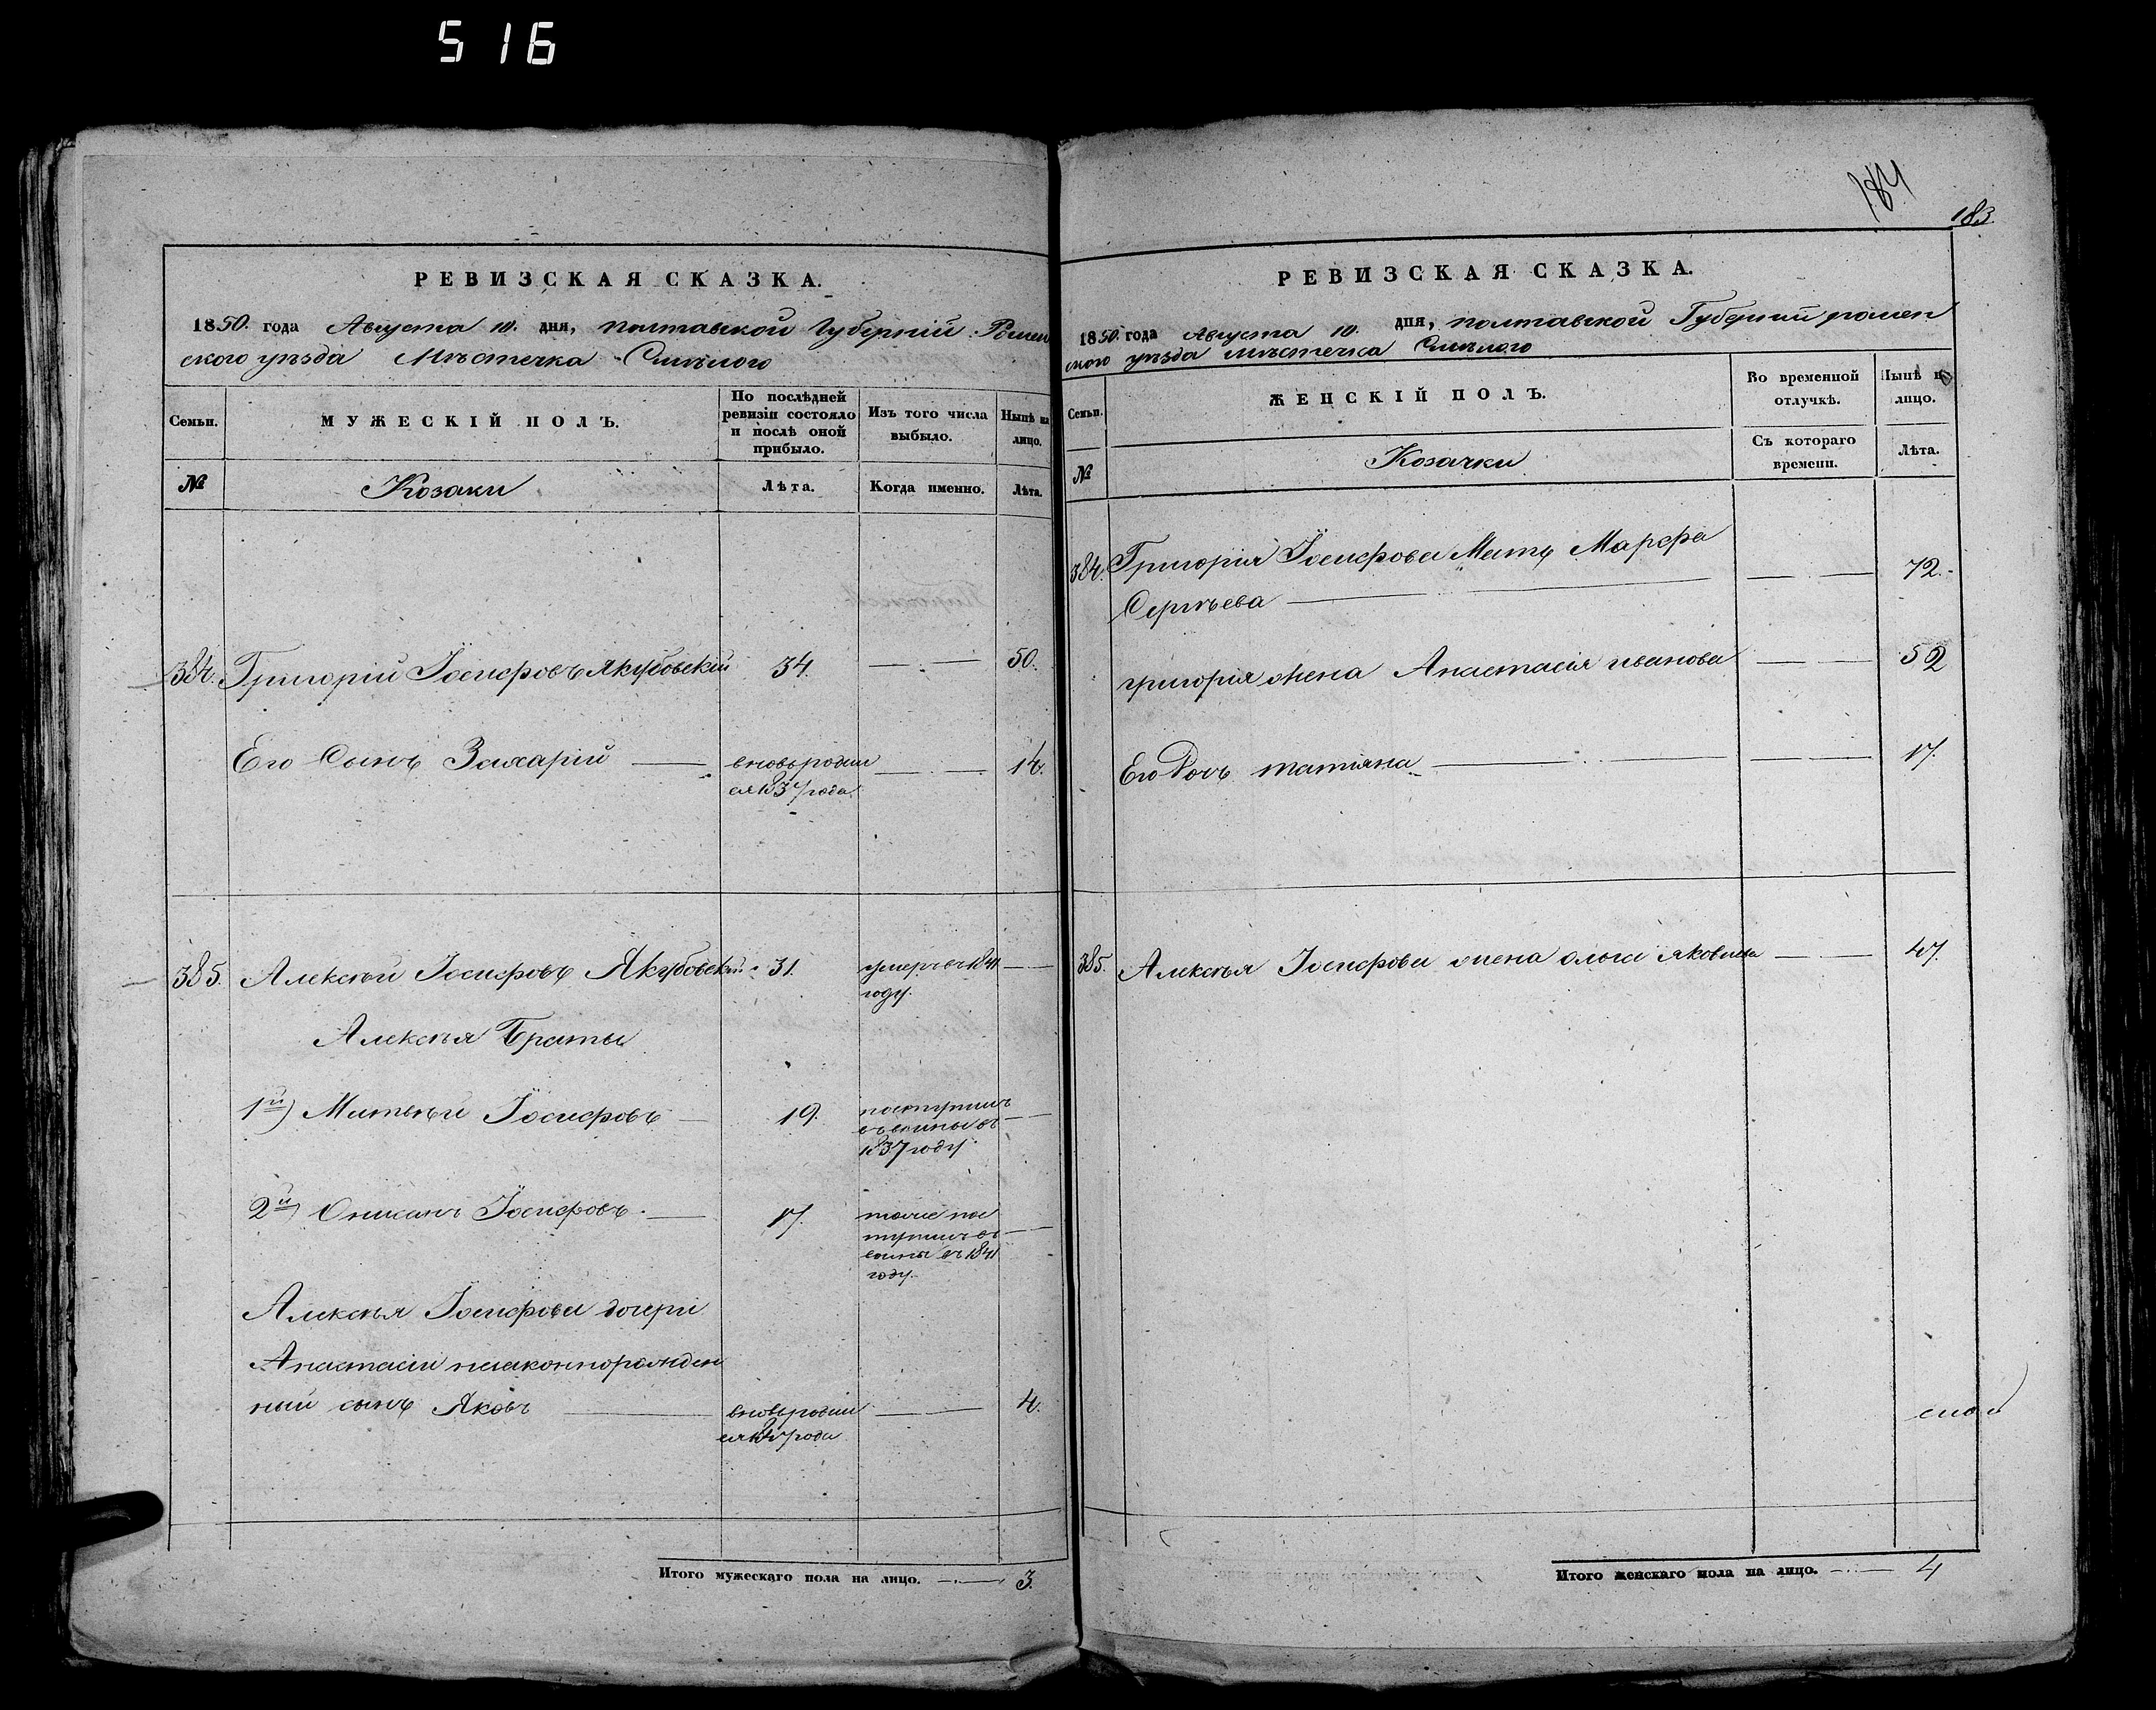 516
РЕВИЗСКАЯ СКАЗКА.
1850. года Августа 10. дня, полтавской Губерніи Ромен
ского уѣзда Мѣстечка Смѣлого
Семьи.
МУЖЕСКІЙ ПОЛЪ.
По послѣдней
ревизіи состояло
и послѣ оной
прибыло.
Изъ того числа
выбыло.
Нынѣ на
лицо.
№
Козаки
Лѣта.
Когда именно.
Лѣта.
384. Григорій Іосифовъ Якубовскій 34. 50.
Его Сынъ Захарій вновь родил 14.
ся 1837 года
385. Алексѣй Іосифовъ Якубовскій 31. умеръ въ 1841
году.
Алексѣя Браты
1й) Матвѣй Іосифовъ 19. поступилъ
1837 году
2й) Іосифовъ 17. тоже пос
тупилъ въ
въ 1841
году.
Алексѣя Іосифова дочери
Анастасіи незаконнорожден
ный сынъ Яковъ вновь родил 4.
ся года
Итого мужескаго пола на лицо. 3.
184
183.
РЕВИЗСКАЯ СКАЗКА.
1850. года Августа 10. дня, полтавской Губерніи ромен
ского уѣзда мѣстечка Смѣлого
Семьи.
ЖЕНСКІЙ ПОЛЪ.
Во временной
отлучкѣ.
Нынѣ на
лицо.
№
Козачки
Съ котораго
времени.
Лѣта.
384. Григорія Іосифова Мать Марфа 72.
Сергѣева
григорія жена Анастасія иванова 52
Его Дочь татіяна 17.
385. Алексѣя Іосифова жена ольга яковлева 47.
Итого женскаго пола на лицо. 4